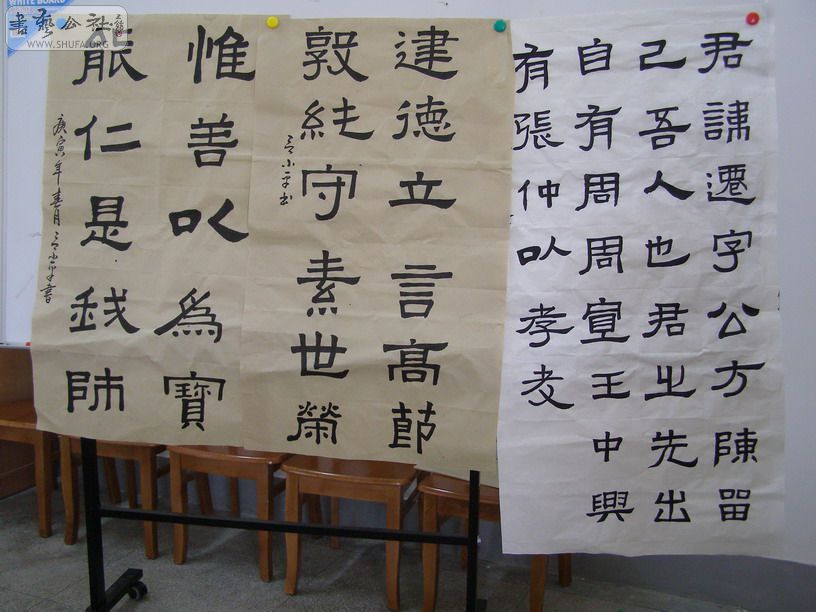 君諱遷字公方陳留
己吾人也君之先出
自有周周宣王中興
有張仲以孝友
建德立言高節
敦純守素世榮
小平书
惟善以為寶
能仁是我師
庚寅年春月
書
WHITE BOARD
書藝公社
WWW.SHUFA.ORG